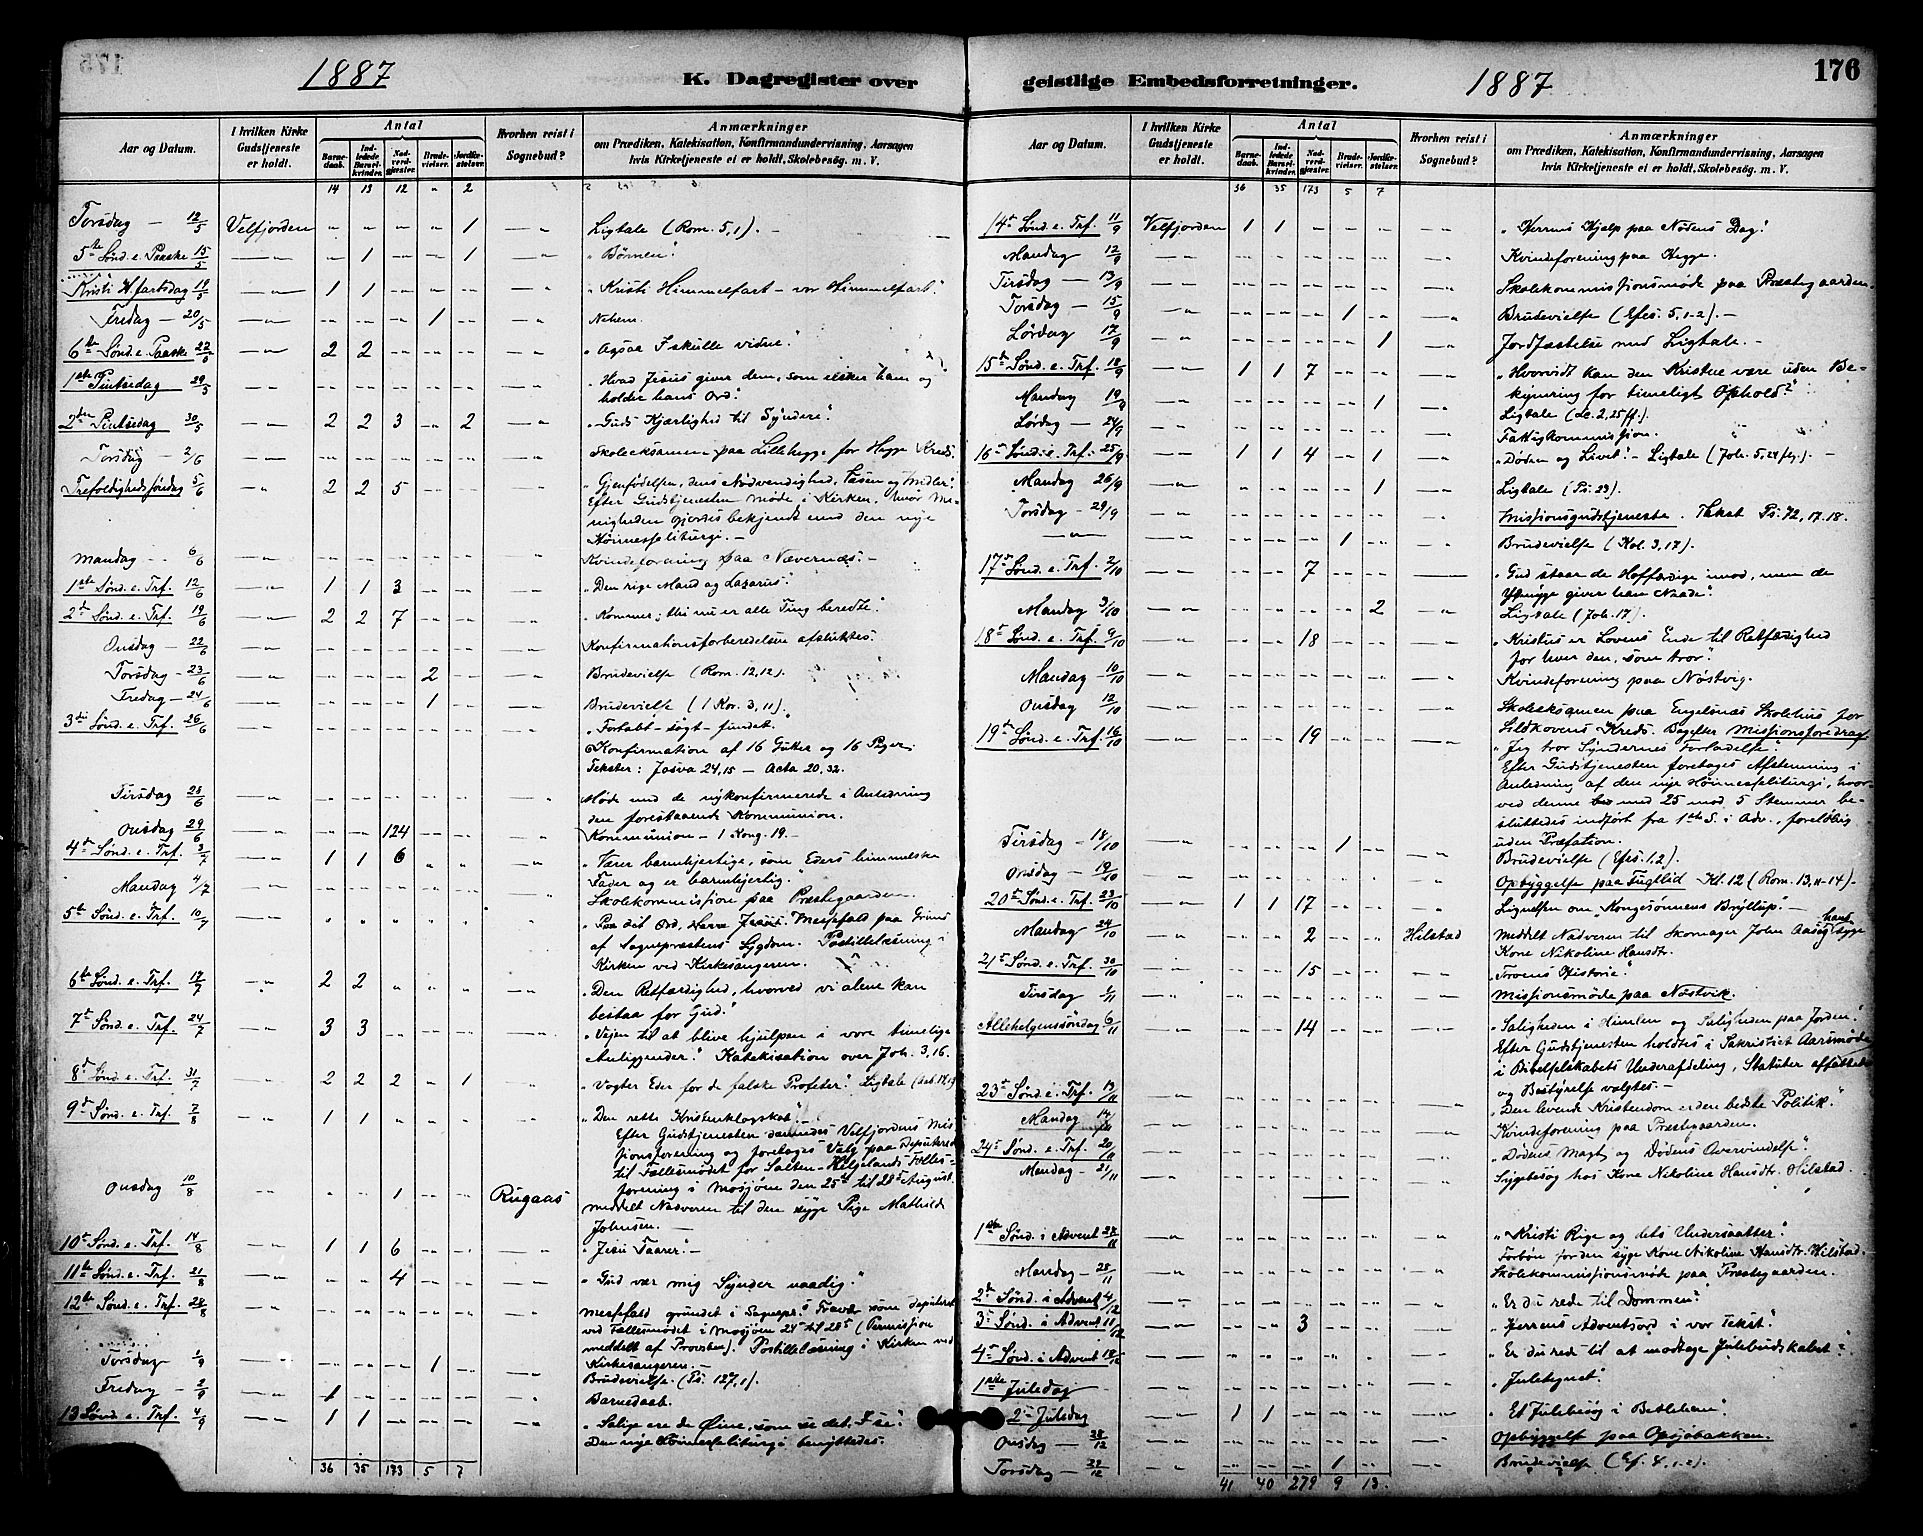 175
1887
K. Dagregister over
Aar og Datum.
I hvilken Kirke Gudstjeneste er holdt.
Antal
Barnedaab.
Indledede Barselkvinder.
Nadverdgjæster.
Brudevielser.
Jordfæstelser.
Hvorhen reist i Sognebud?
Anmærkninger
om Prædiken, Katekisation, Konfirmandundervisning, Aarsagen
hvis Kirketjeneste ei er holdt, Skolebesøg. m. V.
14 13 12 „ 2
Torsdag — 12/5 Velfjorden „ „ „ „ 1 Ligtale (Rom. 5,1). —
5te Sønd. e. Paaske 15/5 „ 1 „ „ 1 „Børnen“.
Kristi H.fartsdag 19/5 1 1 „ „ „ „Kristi Himmelfart – vor Himmelfart“.
Fredag — 20/5 „ „ „ 1 „ Nehem.
6te Sønd. e. Paaske 22/5 2 2 „ „ „ „Ogsaa I skulle vidne“.
1ste Pintsedag 29/5 „Hvad Jesus giver dem, som elsker ham og
holder hans Ord“.
2den Pintsedag 30/5 2 2 3 „ 2 „Guds Kjærlighed til Syndere“.
Torsdag — 2/6 Skoleeksamen paa Lillehegge for Hegge Kreds.
Trefoldighedssøndag 5/6 2 2 5 „Gjenfødelsen, dens Nødvendighed, Væsen og Midler“.
Efter Gudstjenesten Møde i Kirken, hvor Me-
nigheden gjordes bekjendt med den nye
Høimesseliturgi. —
Mandag — 6/6 Kvindeforening paa Nævernæs. —
1ste Sønd. e. Trf. 12/6 1 1 3 „Den rige Mand og Lazarus“.
2d Sønd. e. Trf. 19/6 2 2 7 „Kommer, thi nu er alle Ting beredte“.
Onsdag — 22/6 Konfirmationsforberedelsen afsluttes.
Torsdag — 23/6 2 Brudevielse (Rom. 12,12).
Fredag — 24/6 1 Brudevielse (1 Kor. 3, 11).
3die Sønd. e. Trf. 26/6 „Fortabt – søgt – fundet.“
Konfirmation af 16 Gutter og 16 Piger.
Tekster: Josva 24,15 – Acta 20,32.
Tirsdag 28/6 Møde med de nykonfirmerede i Anledning
den forestaaende Kommunion.
Onsdag 29/6 124 Kommunion – 1 Kong. 19. —
4de Sønd. e. Trf. 3/7 1 1 6 „Værer barmhjertige, som Eders himmelske
Fader og er barmhjertig.“
Mandag 4/7 Skolekommission paa Præstegaarden.
5te Sønd. e. Trf. 10/7 „Paa dit Ord, Herre Jesus“. Messefald paa Grund
af Sognepræstens Sygdom. Postillelæsning i
Kirken ved Kirkesangeren.
6te Sønd. e. Trf. 17/7 2 2 „Den Retfærdighed, hvorved vi alene kan
bestaa for Gud.“
7d Sønd. e. Trf. 24/7 3 3 „Vejen til at blive hjulpen i vore timelige
Anliggender“. Katekisation over Joh. 3,16.
8d Sønd. e. Trf. 31/7 2 2 2 „ 1 „Vogter Eder for de falske Profeter“. Ligtale
9d Sønd. e. Trf. 7/8 1 1 „Den rette Kristenklogskab“.
Efter Gudstjenesten dannedes Velfjordens Mis-
sionsforening og foretoges Valg paa Deputered
til Fællesmødet for Salten-Helgelands Fælles-
forening i Mosjøen den 25d til 28d August.
Onsdag 10/8 1 Rugaas meddelt Nadveren til den syge Pige Mathilde
Johnsen. —
10d Sønd. e. Trf. 14/8 1 1 6 „Jesu Taarer“. —
11te Sønd. e. Trf. 21/8 4 „Gud vær mig Synder naadig.“
12te Sønd. e. Trf. 28/8 Messefald grundet i Sognepr.s Fravær som deputeret
ved Fællesmødet i Mosjøen 24d til 28d (Permission
meddelt af Provsten). Postillelæsning i Kirken ved
Kirkesangeren. —
Torsdag — 1/9 1 Brudevielse. (Ps. 127,1).
Fredag — 2/9 1 Barnedaab.
13 Sønd. e. Trf. 4/9 1 1 „Salige ere de Øine, som se det, I se“.
Den nye Høimesseliturgi benyttedes.
36 35 173 5 7
geistlige Embedsforretninger.
1887
176
Aar og Datum.
I hvilken Kirke Gudstjeneste er holdt.
Antal
Barnedaab.
Indledede Barselkvinder.
Nadverdgjæster.
Brudevielser.
Jordfæstelser.
Hvorhen reist i Sognebud?
Anmærkninger
om Prædiken, Katekisation, Konfirmandundervisning, Aarsagen
hvis Kirketjeneste ei er holdt, Skolebesøg. m. V.
36 35 173 5 7
14d Sønd. e. Trf. 11/9 Velfjorden 1 1 „Herrens Hjælp paa Nødens Dag“.
Mandag 12/9 Kvindeforening paa Hegge.
Tirsdag — 13/9 Skolekommissionsmøde paa Præstegaarden.
Torsdag — 15/9 1 Brudevielse (Efes. 5,1-2). —
Lørdag 17/9 1 Jordfæstelse med Ligtale. —
15d Sønd. e. Trf. 18/9 1 1 7 „Hvorvidt kan den Kristne være uden Be-
kymring for timeligt Ophold?“
Mandag 19/9 1 Ligtale (Lc. 2,25 ff.).
Lørdag — 24/9 Fattigkommission.
16d Sønd. e. Trf. 25/9 1 1 4 „ 1 „Døden og Livet“. – Ligtale (Joh. 5,24 flg.). —
Mandag 26/9 1 Ligtale (Ps. 23).
Torsdag — 29/9 Missionsgudstjeneste. Tekst Ps. 72, 17.18.
— „ — 1 Brudevielse (Kol. 3,17).
17d Sønd. e. Trf. 2/10 7 „Gud staar de Hoffærdige imod, men de
Ydmyge giver han Naade“.
Mandag 3/10 2 Ligtale (Joh. 17).
18d Sønd. e. Trf. 9/10 18 „Kristus er Lovens Ende til Retfærdighed
for hver den, som tror“.
Mandag 10/10 Kvindeforening paa Nøstvig.
Onsdag 12/10 Skoleeksamen paa Engelsnæs Skolehus for
Sildkovens Kreds. Bagefter Missionsforedrag
19d Sønd. e. Trf. 16/10 19 „Jeg tror Syndernes Forladelse“.
Efter Gudstjenesten foretoges Afstemning i
Anledning af den nye Høimesseliturgi, hvor-
ved denne med 25 mod 5 Stemmer be-
sluttedes indført fra 1ste S. i Adv., foreløbig
uden Præfation.
Tirsdag — 18/10 1 Brudevielse (Efes. 1,2).
Onsdag — 19/10 Opbyggelse paa Fugllid – Kl. 12 (Rom. 13, 11-14) –
20d Sønd. e. Trf. 23/10 1 1 17 Lignelsen om „Kongesønnens Bryllup“. —
Mandag 24/10 2 Hilstad meddelt Nadveren til Skomager John Aasen og hans syge
Kone Nikoline Hansdtr.
21d Sønd. e. Trf. 30/10 15 „Troens Historie“.
Tirsdag 1/11 Missionsmøde paa Nøstvik.
Allehelgenssøndag 6/11 14 „Saligheden i Himlen og Saligheden paa Jorden“.
Efter Gudstjenesten holdtes i Sakristiet Aarsmøde
i Bibelselskabets Underafdeling, Statuter affattedes
og Bestyrelse valgtes. —
23d Sønd. e. Trf. 13/11 „Den levende Kristendom er den bedste Politik“.
Mandag 14/11 Kvindeforening paa Præstegaarden.
24d Sønd. e. Trf. 20/11 „Dødens Magt og Dødens Overvindelse“.
Mandag — 21/11 Sygebesøg hos Kone Nikoline Hansdtr. Hilstad.
1ste Sønd. i Advent 27/11 „Kristi Rige og dets Undersaatter“.
Forbøn for den syge Kone Nikoline Hansdtr. Hilstad.
Mandag — 28/11 Skolekommissionsmøde paa Præstegaarden.
2d Sønd. i Advent 4/12 „Er du rede til Dommen“?
3d Sønd. i Advent 11/12 3 „Herrens Adventsord i vor Tekst“.
4d Sønd. i Advent 18/12 „Er du rede til at modtage Julebudskabet“?
1ste Juledag „Juletegnet“.
2d Juledag 1 1 „Et Julebesøg i Betlehem“.
Onsdag — 28/12 Opbyggelse paa Opsjøbakken.
Torsdag — 29/12 1 Brudevielse (Ef. 4,1-2).
41 40 279 9 13